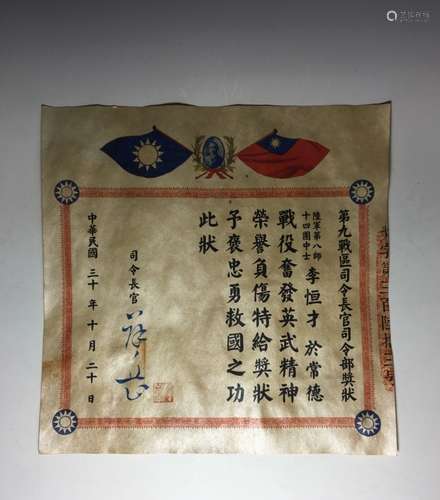 第九戰區司令長官司令部獎狀
陸軍第八師
十四團中士
李恒才 於常德
戰役奮發英武精神
榮譽負傷特給獎狀
予褒忠勇救國之功
此狀
司令長官
中華民國 三十年十月二十日